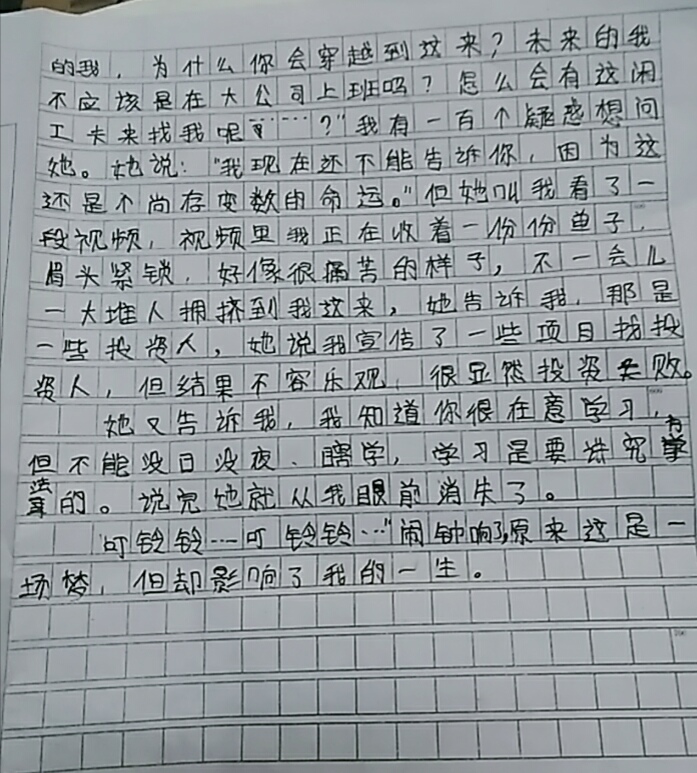 的我，为什么你会穿越到这来？未来的我
不应该是在大公司上班吗？怎么会有这闲
工夫来找我呢……？"我有一百个疑惑想问
她。她说："我现在还不能告诉你，因为这
还是个尚存变数的命运。"但她叫我看了一
段视频，视频里我正在收着一份份单子，
眉头紧锁，好像很痛苦的样子，不一会儿
一大堆人拥挤到我这来，她告诉我，那是
一些投资人，她说我宣传了一些项目找投
资人，但结果不容乐观，很显然投资失败。
她又告诉我，我知道你很在意学习，
但不能没日没夜、瞎学，学习是要讲究有
法的。说完她就从我眼前消失了。
"叮铃铃……叮铃铃……"闹钟响了，原来这是一
场梦，但却影响了我的一生。